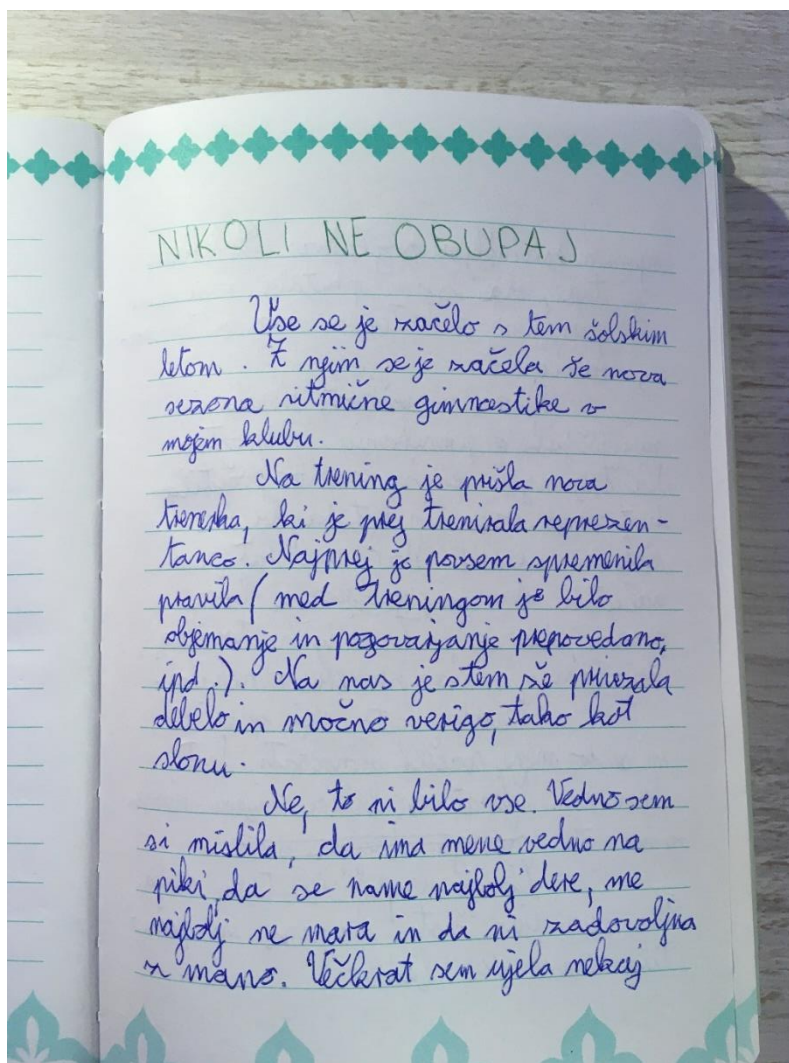 NIKOLI NE OBUPAJ
Vse se je začelo s tem šolskim
letom. Z njim se je začela še nova
sezona ritmične gimnastike v
mojem klubu.
Na trening je prišla nova
trenerka, ki je prej trenirala reprezen-
tanco. Najprej je povsem spremenila
pravila (med treningom je bilo
objemanje in pogovarjanje prepovedano,
ipd.). Na nas je s tem še privezala
debelo in močno verigo, tako kot
slonu.
Ne, to ni bilo vse. Vedno sem
si mislila, da ima mene vedno na
piki, da se name najbolj dere, me
najbolj ne mara in da ni zadovoljna
z mano. Večkrat sem ujela nekaj